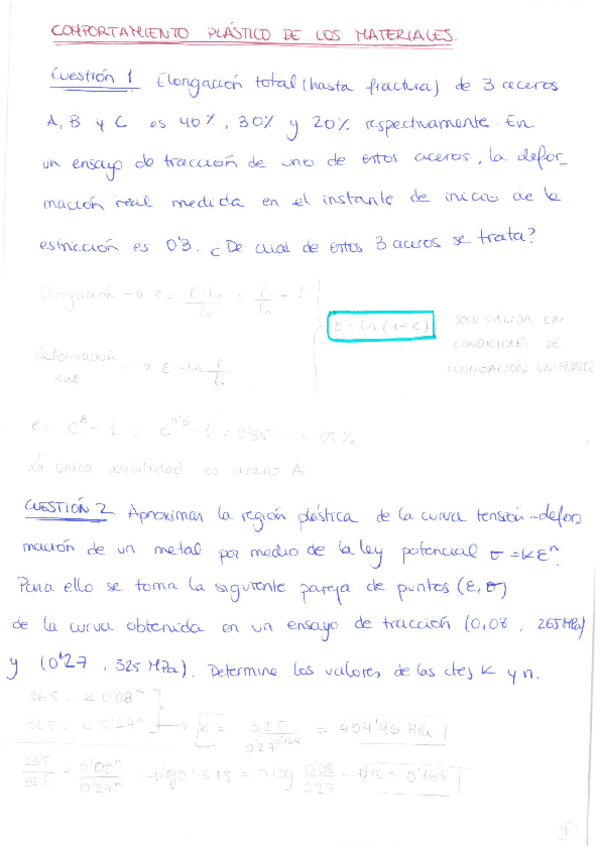 COMPORTAMIENTO PLÁSTICO DE LOS MATERIALES.
Cuestión 1 Elongación total (hasta fractura) de 3 aceros
A, B y C es 40%, 30% y 20% respectivamente. En
un ensayo de tracción de uno de estos aceros, la defor_
mación real medida en el instante de inicio de la
estricción es 0'3. ¿De cual de estos 3 aceros se trata?
Elongación → e = l-l₀/l₀ = l/l₀ - 1
ε = ln(1+e)
SOLO VALIDA EN
CONDICIONES DE
ELONGACIÓN UNIFORME
Deformación
real → ε = ln l/l₀
e = e^ε - 1 = e^0'3 - 1 = 0'35 → 35%
La única posibilidad es acero A.
CUESTIÓN 2 Aproximar la región plástica de la curva tensión-defor_
mación de un metal por medio de la ley potencial σ = Kεⁿ.
Para ello se toma la siguiente pareja de puntos (ε, σ)
de la curva obtenida en un ensayo de tracción (0,08, 265 MPa)
y (0'27, 325 MPa). Determine los valores de las ctes K y n.
265 = K 0'08ⁿ
325 = K 0'27ⁿ → K = 325/0'27^0'168 = 404'96 MPa
265/325 = 0'08ⁿ/0'27ⁿ → log 0'815 = n log 0'08/0'27 → n = 0'168
1